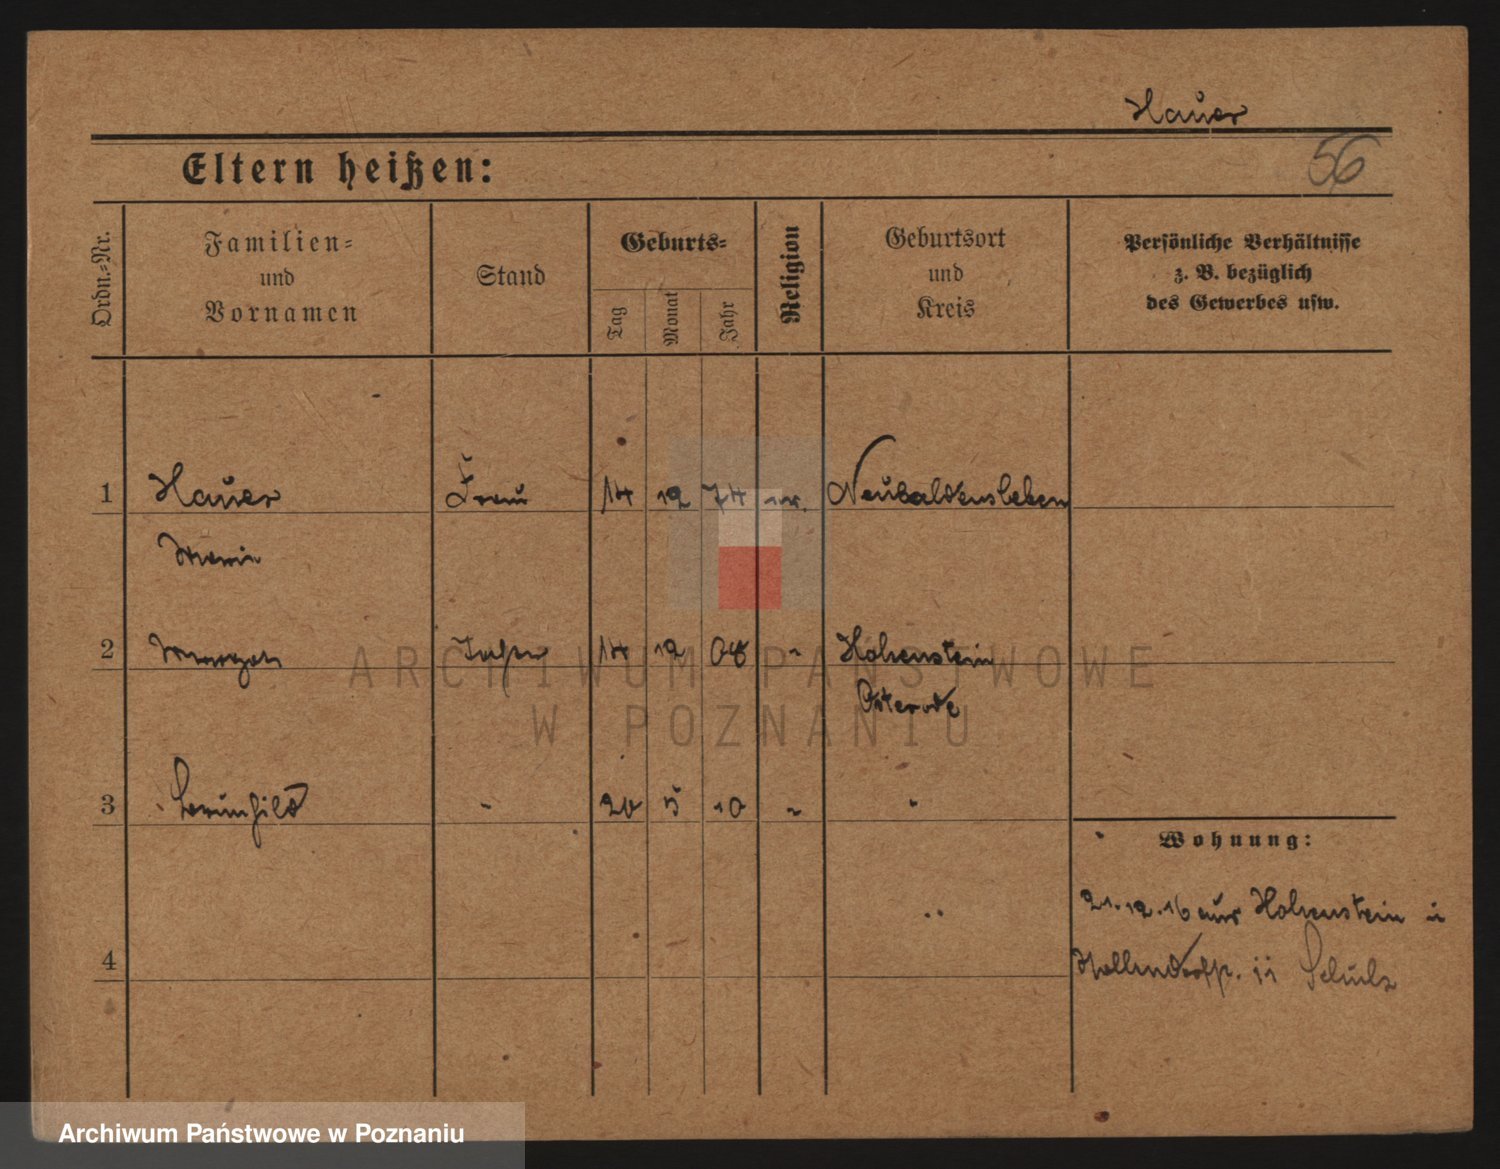 Hauer
56
Eltern heißen:
Ordn.-Nr.
Familien-
und
Vornamen
Stand
Geburts-
Tag
Monat
Jahr
Religion
Geburtsort
und
Kreis
Persönliche Verhältnisse
z. B. bezüglich
des Gewerbes usw.
1 Hauer Frau 14 12 74 Neuhaldensleben
2 14 12 08 " Hohenstein
Osterode
3 " 20 5 10 " "
Wohnung:
21.12.16 aus Hohenstein
4
Schulz
ARCHIWUM PAŃSTWOWE
W POZNANIU
Archiwum Państwowe w Poznaniu